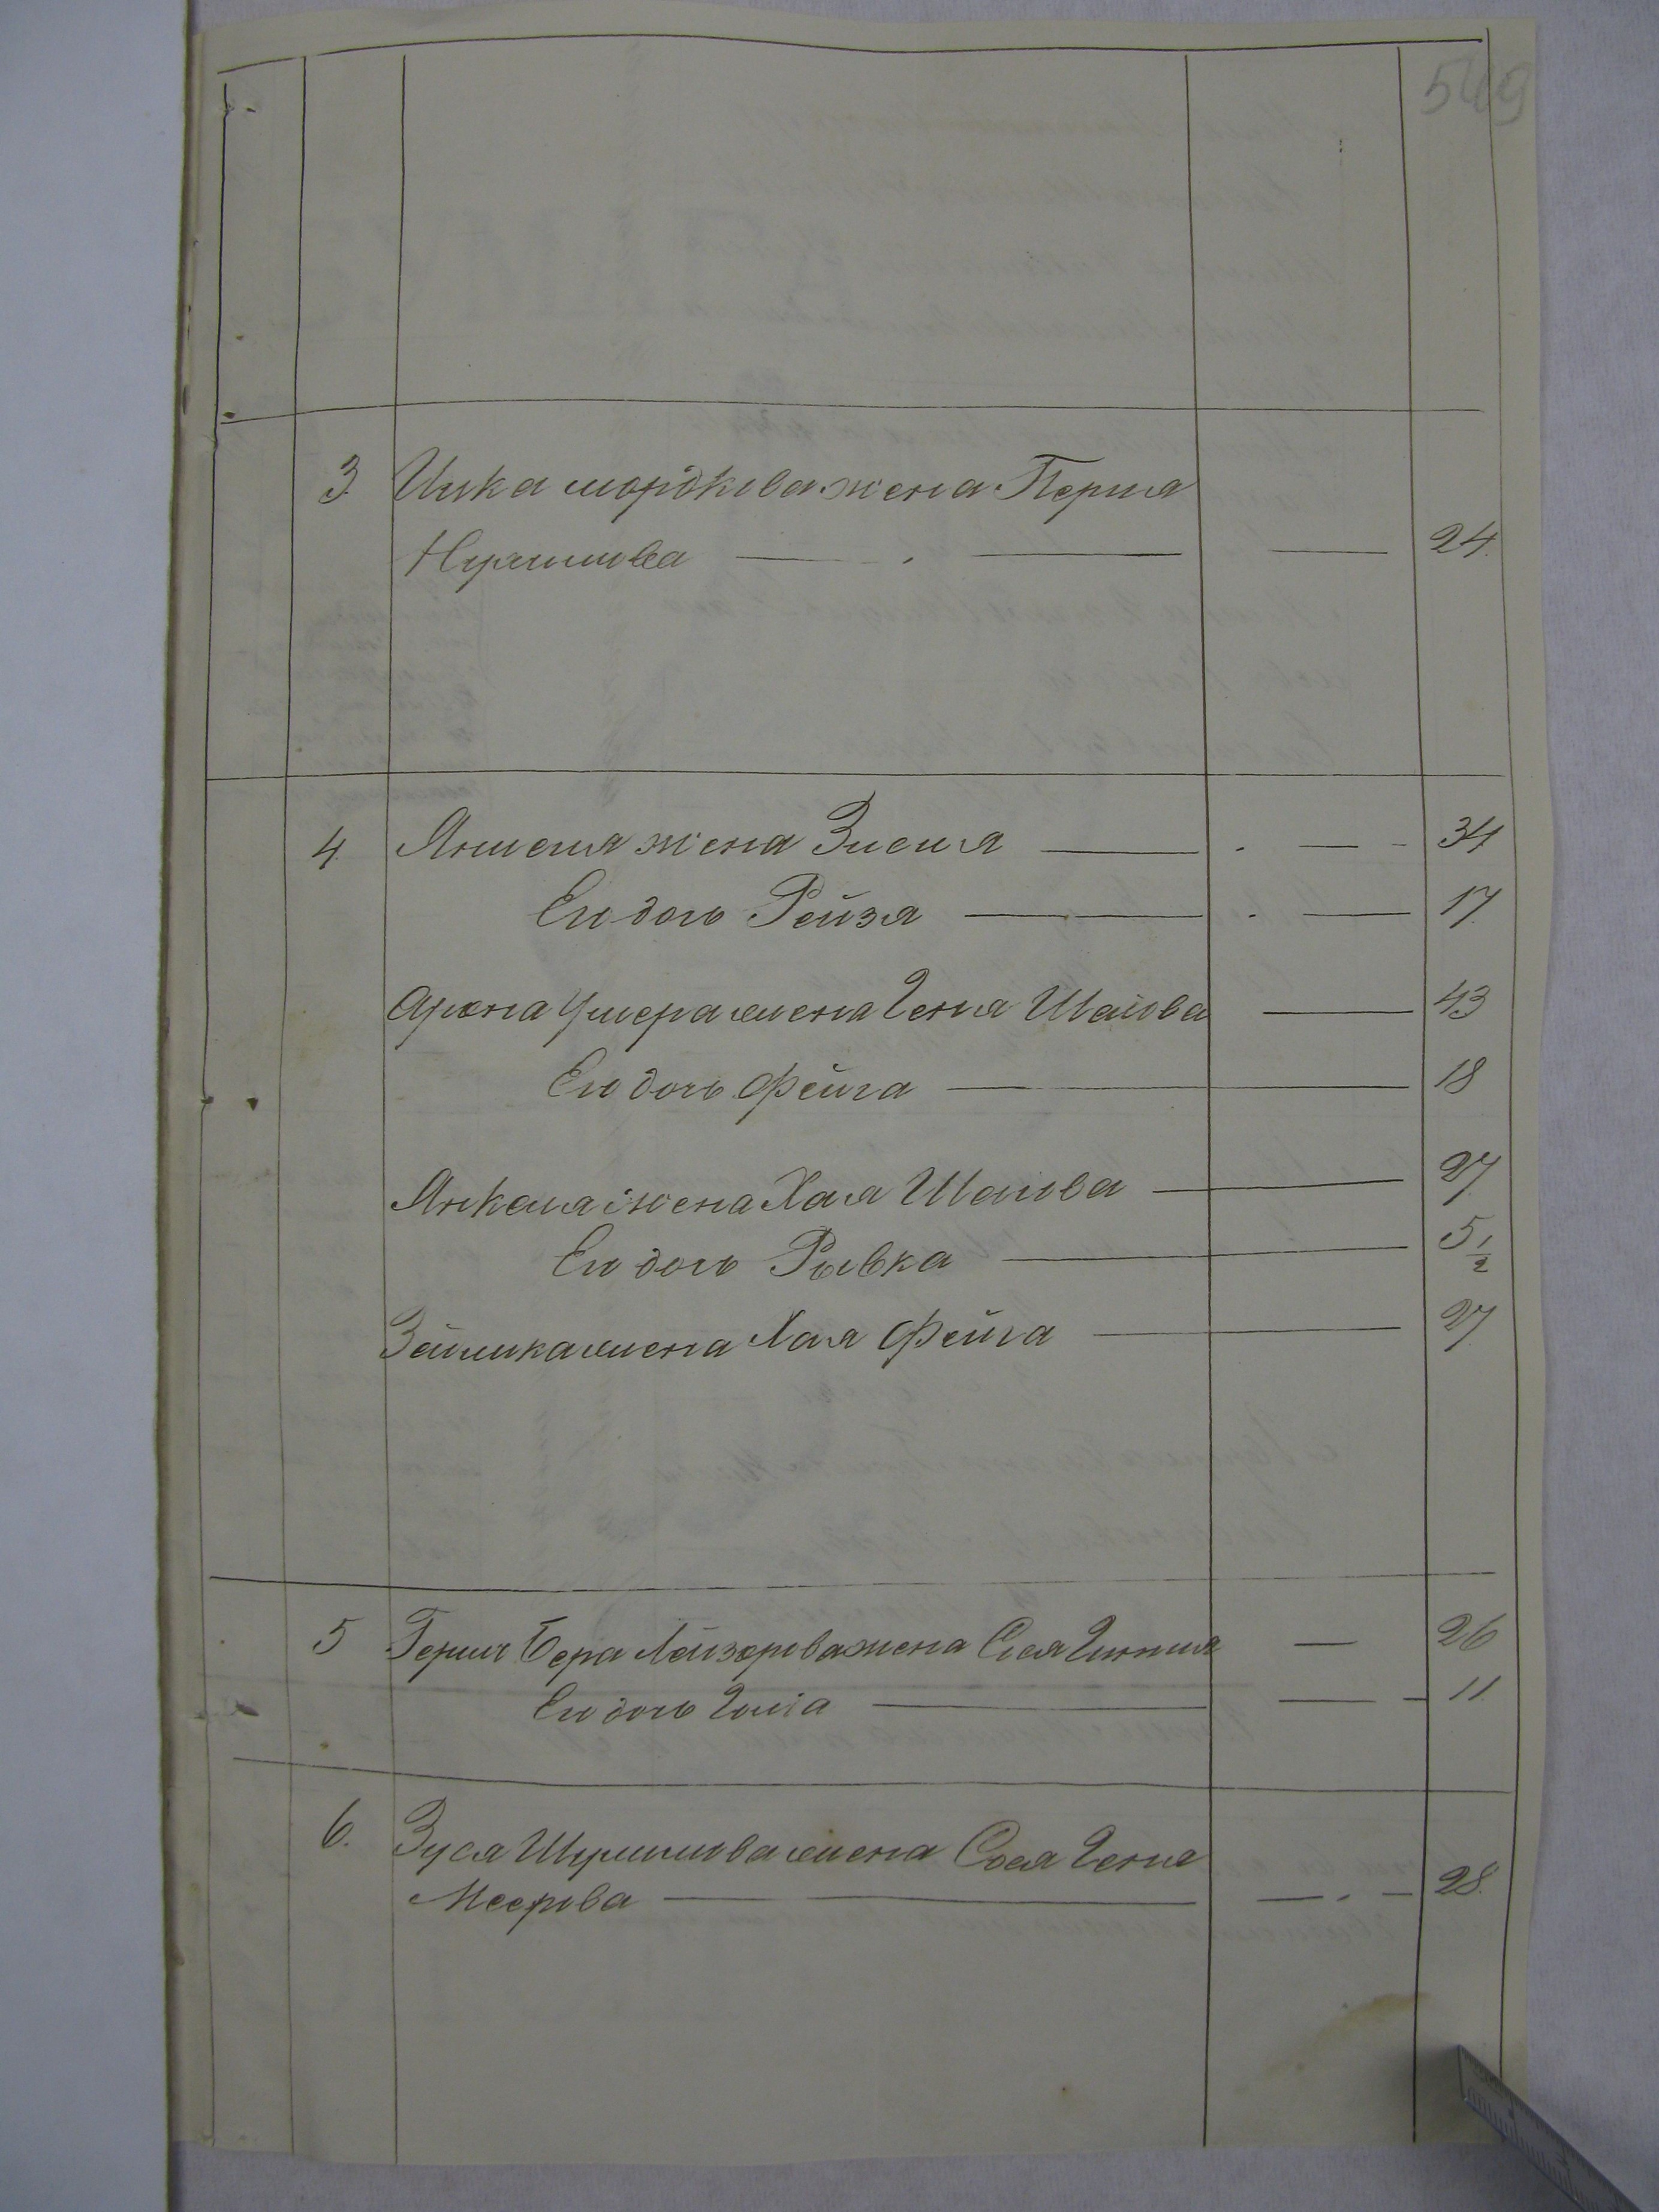 549
3. Ицка мордкова жена Перля
Нухимова 24.
4. Яншеля жена Зислия 34
Его дочь Рейзя 17
Арона Умера жена Геня Шаiова 43
Его дочь Фейга 18
Янкеля жена Хая Шаiова 27
Его дочь Рывка 5 1/2
Зейлика жена Хая Фейга 27
5 Герш Бера Лейзерова жена Сися 26
Его дочь Голiа 11
6. Зуся жена Сося Геня
Меерова 28.